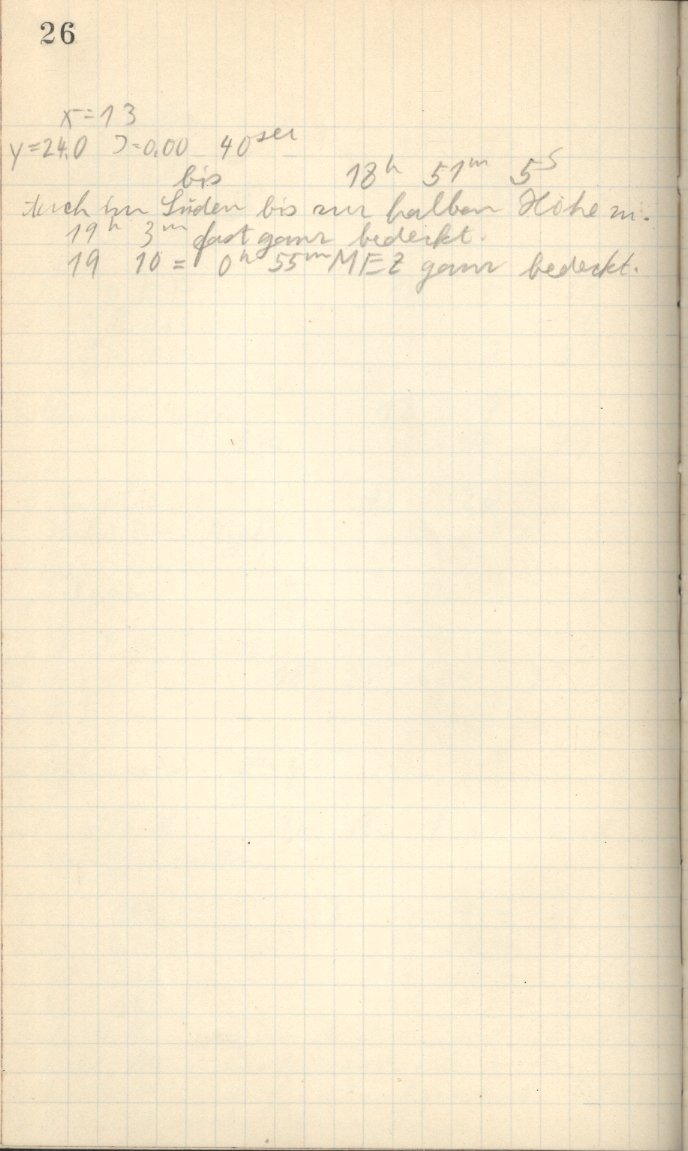 26
x=13
y=24.0 J=0.00 40sec
bis 18h 51m 5s
Auch im Süden bis zur halben Höhe zu.
19h 3m fast ganz bedeckt.
19 10 = 0h 55m MEZ ganz bedeckt.